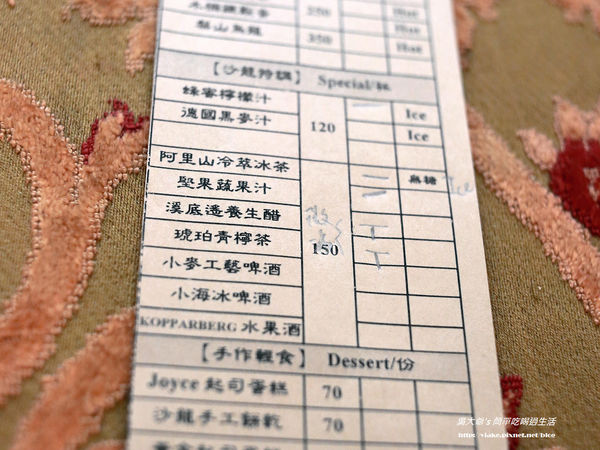 250 Hot
梨山烏龍 350 Hot
【沙龍特調】 Special/杯
蜂蜜檸檬汁 一 Ice
德國黑麥汁 120 Ice
阿里山冷萃冰茶 無糖
堅果蔬果汁 二 Ice
溪底遙養生醋 微
琥珀青檸茶 150
小麥工藝啤酒
小海冰啤酒
KOPPARBERG 水果酒
【手作輕食】 Dessert/份
Joyce 起司蛋糕 70
沙龍手工餅乾 70
吳大劇's 簡單吃喝過生活